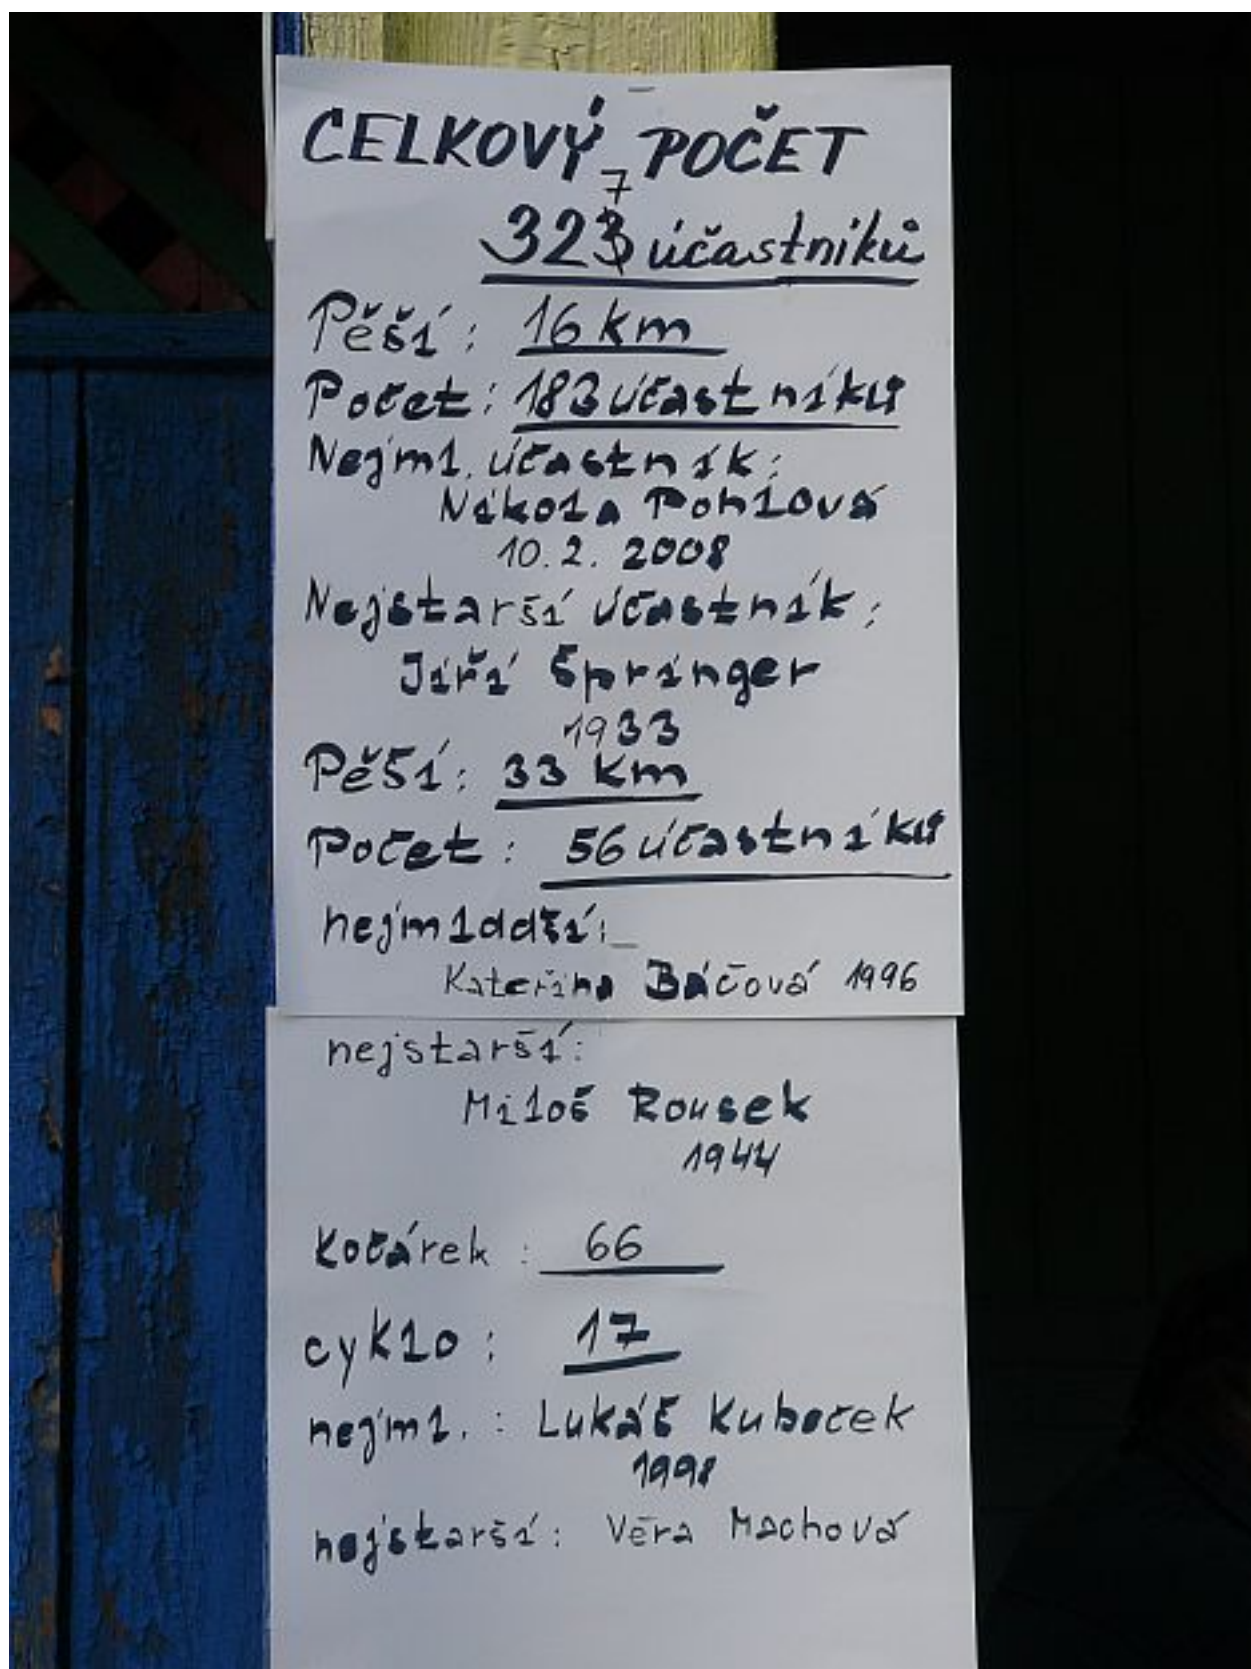 CELKOVÝ POČET
7
323 účastníků
Pěší: 16 km
Počet: 183 účastníků
Nejml. účastník:
Nikola Pohlová
10.2. 2008
Nejstarší účastník:
Jiří Springer
1933
Pěší: 33 km
Počet: 56 účastníků
nejmladší:
Kateřina Báčová 1996
nejstarší:
Miloš Rousek
1944
Kočárek: 66
cyklo: 17
nejml.: Lukáš Kuboček
1998
nejstarší: Věra Machová